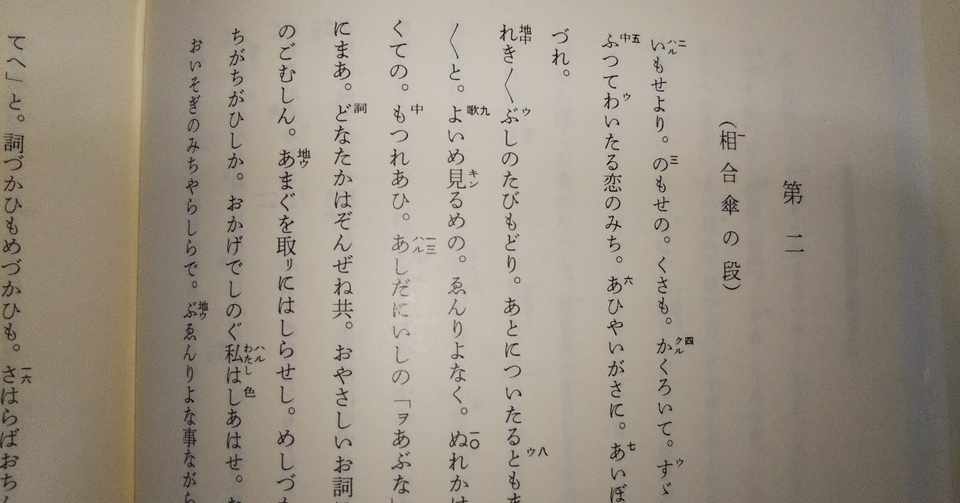 第二
（相合傘の段）
いもせより。のもせの。くさも。かくろいて。すゞ
ふつてわいたる恋のみち。あひやいがさに。あいぼ
づれ。
れき〳〵ぶしのたびもどり。あとについたるとも
〳〵と。よいめ見るめの。ゑんりよなく。ぬれかけ
くての。もつれあひ。あしだにいしの「ヲあぶな
にまあ。どなたかはぞんぜね共。おやさしいお詞
のごむしん。あまぐを取リにはしらせし。めしづ
ちがちがひしか。おかげでしのぐ私はしあはせ。
おいそぎのみちやらしらで。ぶゑんりよな事ながら
てへ」と。詞づかひもめづかひも。さはらばおち